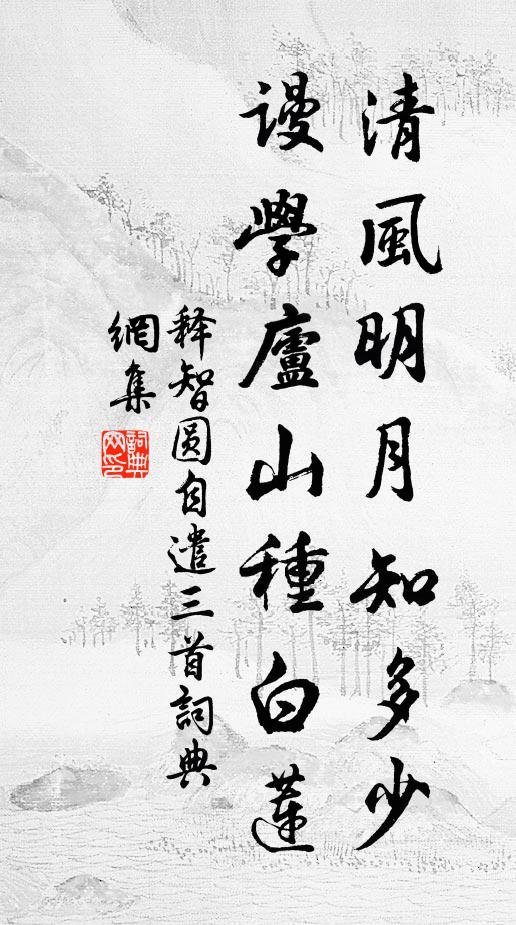 清風明月知多少
謾學廬山種白蓮
释智圆自遣三首詞典
網集
詞典網印